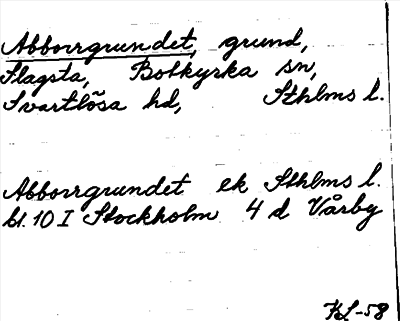 Abborrgrundet, grund,
Slagsta, Botkyrka sn,
Svartlösa hd, Sthlms l.
Abborrgrundet ek Sthlms l.
bl. 10 I Stockholm 4 d Vårby
KL-58